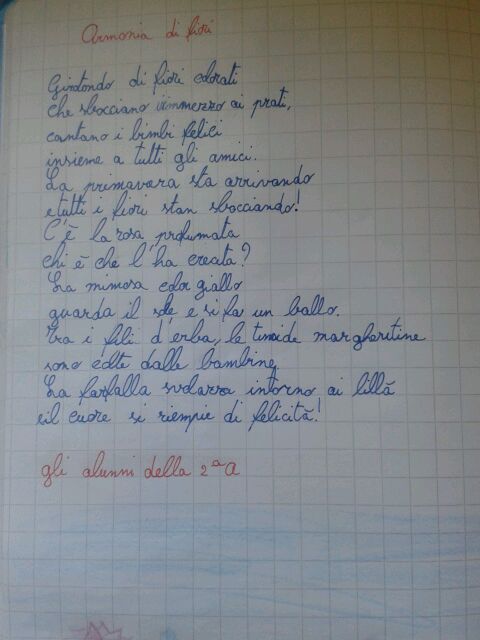 Armonia di fiori
Girotondo di fiori colorati
che sbocciano immmezzo ai prati,
cantano i bimbi felici
insieme a tutti gli amici.
La primavera sta arrivando
e tutti i fiori stan sbocciando!
C'è la rosa profumata
chi è che l'ha creata?
La mimosa color giallo
guarda il sole e si fa un ballo.
Tra i fili d'erba, le timide margheritine
sono colte dalle bambine,
La farfalla svolazza intorno ai lillà
e il cuore si riempie di felicità!
gli alunni della 2ª A